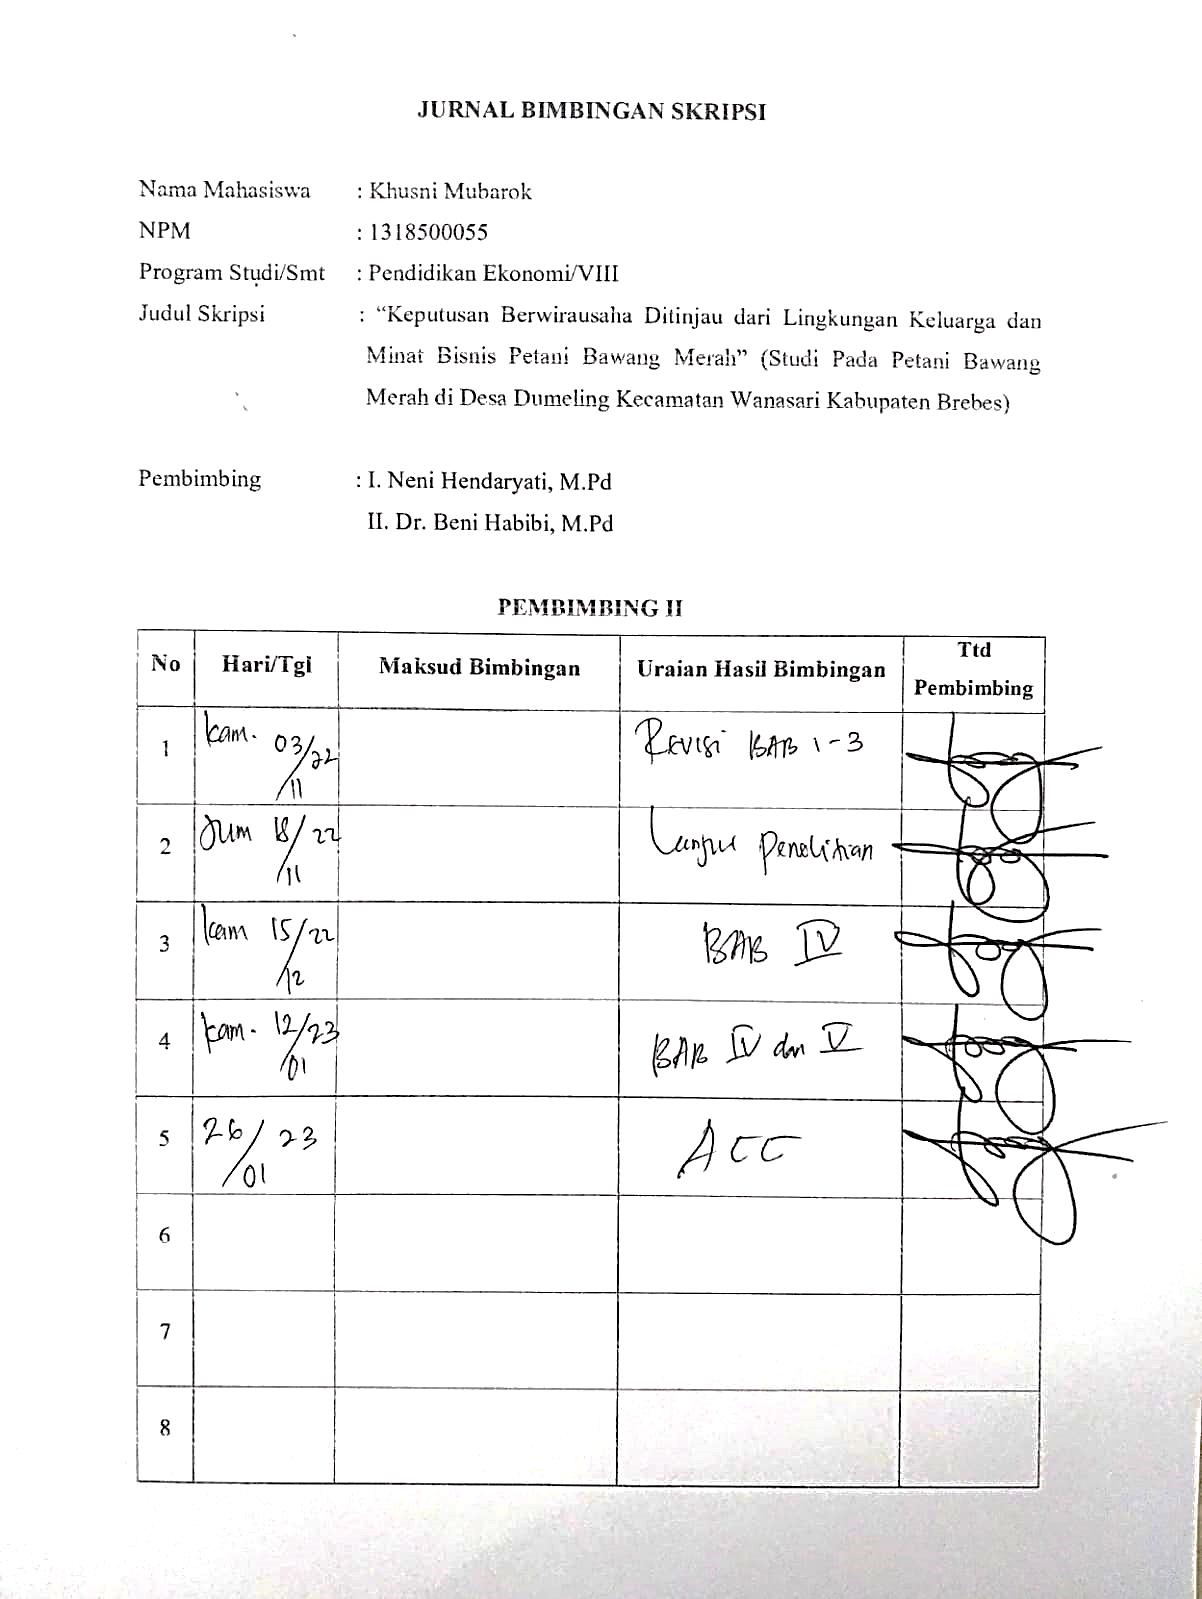 JURNAL BIMBINGAN SKRIPSI
Nama Mahasiswa : Khusni Mubarok
NPM : 1318500055
Program Studi/Smt : Pendidikan Ekonomi/VIII
Judul Skripsi : “Keputusan Berwirausaha Ditinjau dari Lingkungan Keluarga dan
Minat Bisnis Petani Bawang Merah” (Studi Pada Petani Bawang
Merah di Desa Dumeling Kecamatan Wanasari Kabupaten Brebes)
Pembimbing : I. Neni Hendaryati, M.Pd
II. Dr. Beni Habibi, M.Pd
PEMBIMBING II
No Hari/Tgl Maksud Bimbingan Uraian Hasil Bimbingan Ttd Pembimbing
1 kam. 03/11/22 Revisi BAB 1-3
2 Jum 18/11/22 Lanjut Penelitian
3 kam 15/12/22 BAB IV
4 kam. 12/01/23 BAB IV dan V
5 26/01/23 ACC
6
7
8